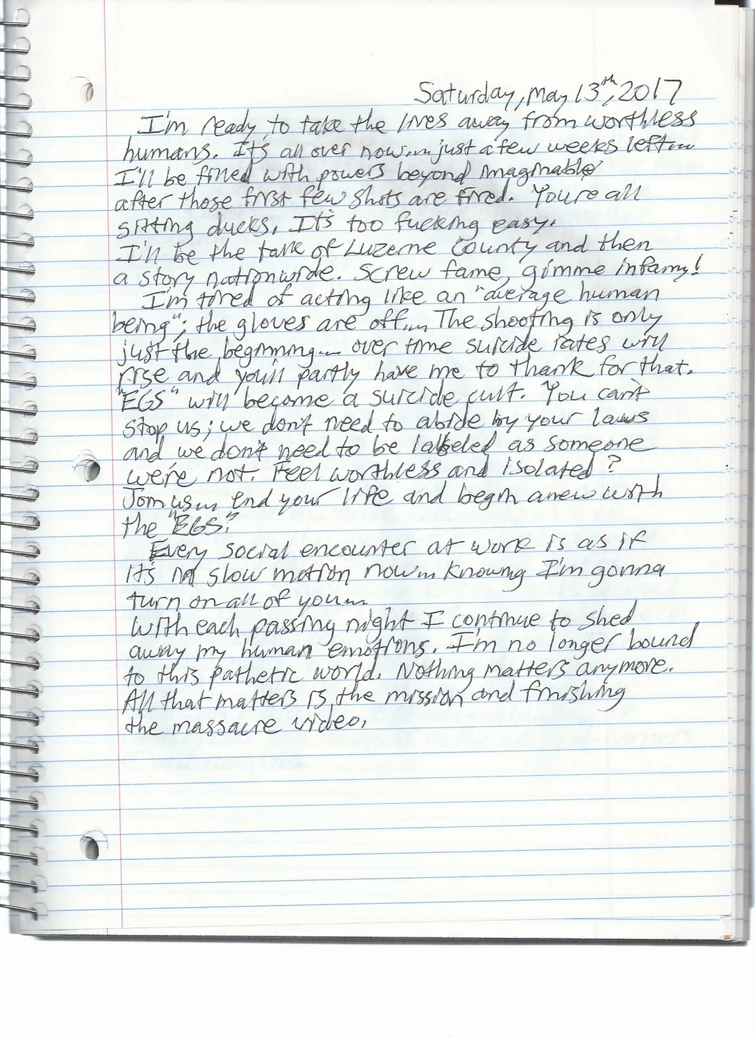 Saturday, May 13th, 2017
I'm ready to take the lives away from worthless
humans. It's all over now... just a few weeks left...
I'll be filled with powers beyond imaginable
after those first few shots are fired. You're all
sitting ducks. It's too fucking easy.
I'll be the talk of Luzerne County and then
a story nationwide. Screw fame, gimme infamy!
I'm tired of acting like an "average human
being"; the gloves are off... The shooting is only
just the beginning... over time suicide rates will
rise and you'll partly have me to thank for that.
"EGS" will become a suicide cult. You can't
stop us; we don't need to abide by your laws
and we don't need to be labeled as someone
we're not. Feel worthless and isolated?
Join us... end your life and begin anew with
the "EGS."
Every social encounter at work is as if
it's in slow motion now... knowing I'm gonna
turn on all of you...
With each passing night I continue to shed
away my human emotions. I'm no longer bound
to this pathetic world. Nothing matters anymore.
All that matters is the mission and finishing
the massacre video.